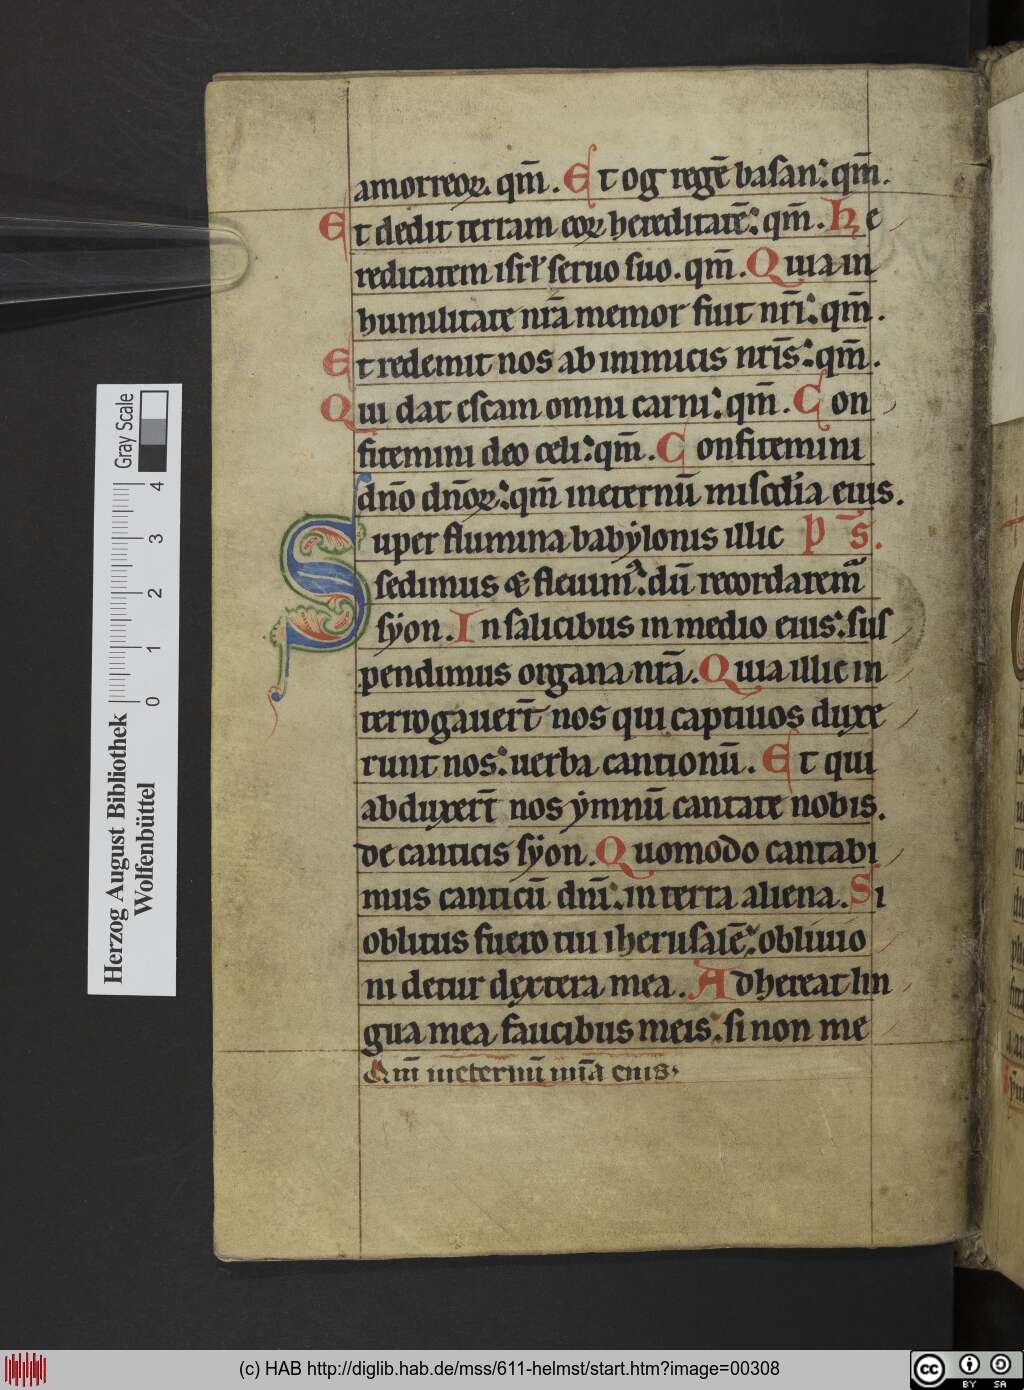 amorreoꝝ. qm̄. Et og regē basan: qm̄.
Et dedit terram eoꝝ hereditatē: qm̄. He
reditatem isrl̓ seruo suo. qm̄. Quia in
humilitate nr̄a memor fuit nr̄i: qm̄.
Et redemit nos ab inimicis nr̄is: qm̄.
Qui dat escam omni carni: qm̄. Con
fitemini deo celi: qm̄. Confitemini
dn̄o dn̄oꝝ: qm̄ ineternū misc̄dia eius.
Super flumina babẏlonis illic p̄s.
sedimus & fleuim᷒: dū recordarem᷒
sẏon. In salicibus in medio eius: sus
pendimus organa nr̄a. Quia illic in
terrogauer̄t nos qui captiuos duxe
runt nos: uerba cantionū. Et qui
abduxer̄t nos ẏmnū cantate nobis.
de canticis sẏon. Quomodo cantabi
mus canticū dn̄i: in terra aliena. Si
oblitus fuero tui iherusalē: obliuio
ni detur dextera mea. Adhereat lin
gua mea faucibus meis. si non me
Qm̄ ineternū mīa eius.
Herzog August Bibliothek
Wolfenbüttel
Gray Scale
0 1 2 3 4
(c) HAB http://diglib.hab.de/mss/611-helmst/start.htm?image=00308
cc BY SA